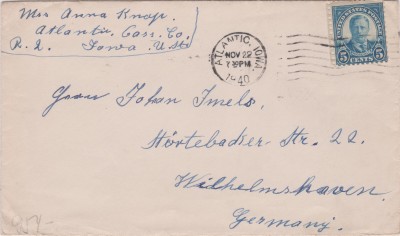 Mrs Anna Knop.
Atlantic, Cass. Co.
R. 2. Iowa. U.S.A
ATLANTIC, IOWA.
NOV 22
7 30 PM
1940
UNITED STATES POSTAGE
5 CENTS 5
Herrn Johan Imels.
Störtebecker Str. 22.
Wilhelmshaven.
Germany.